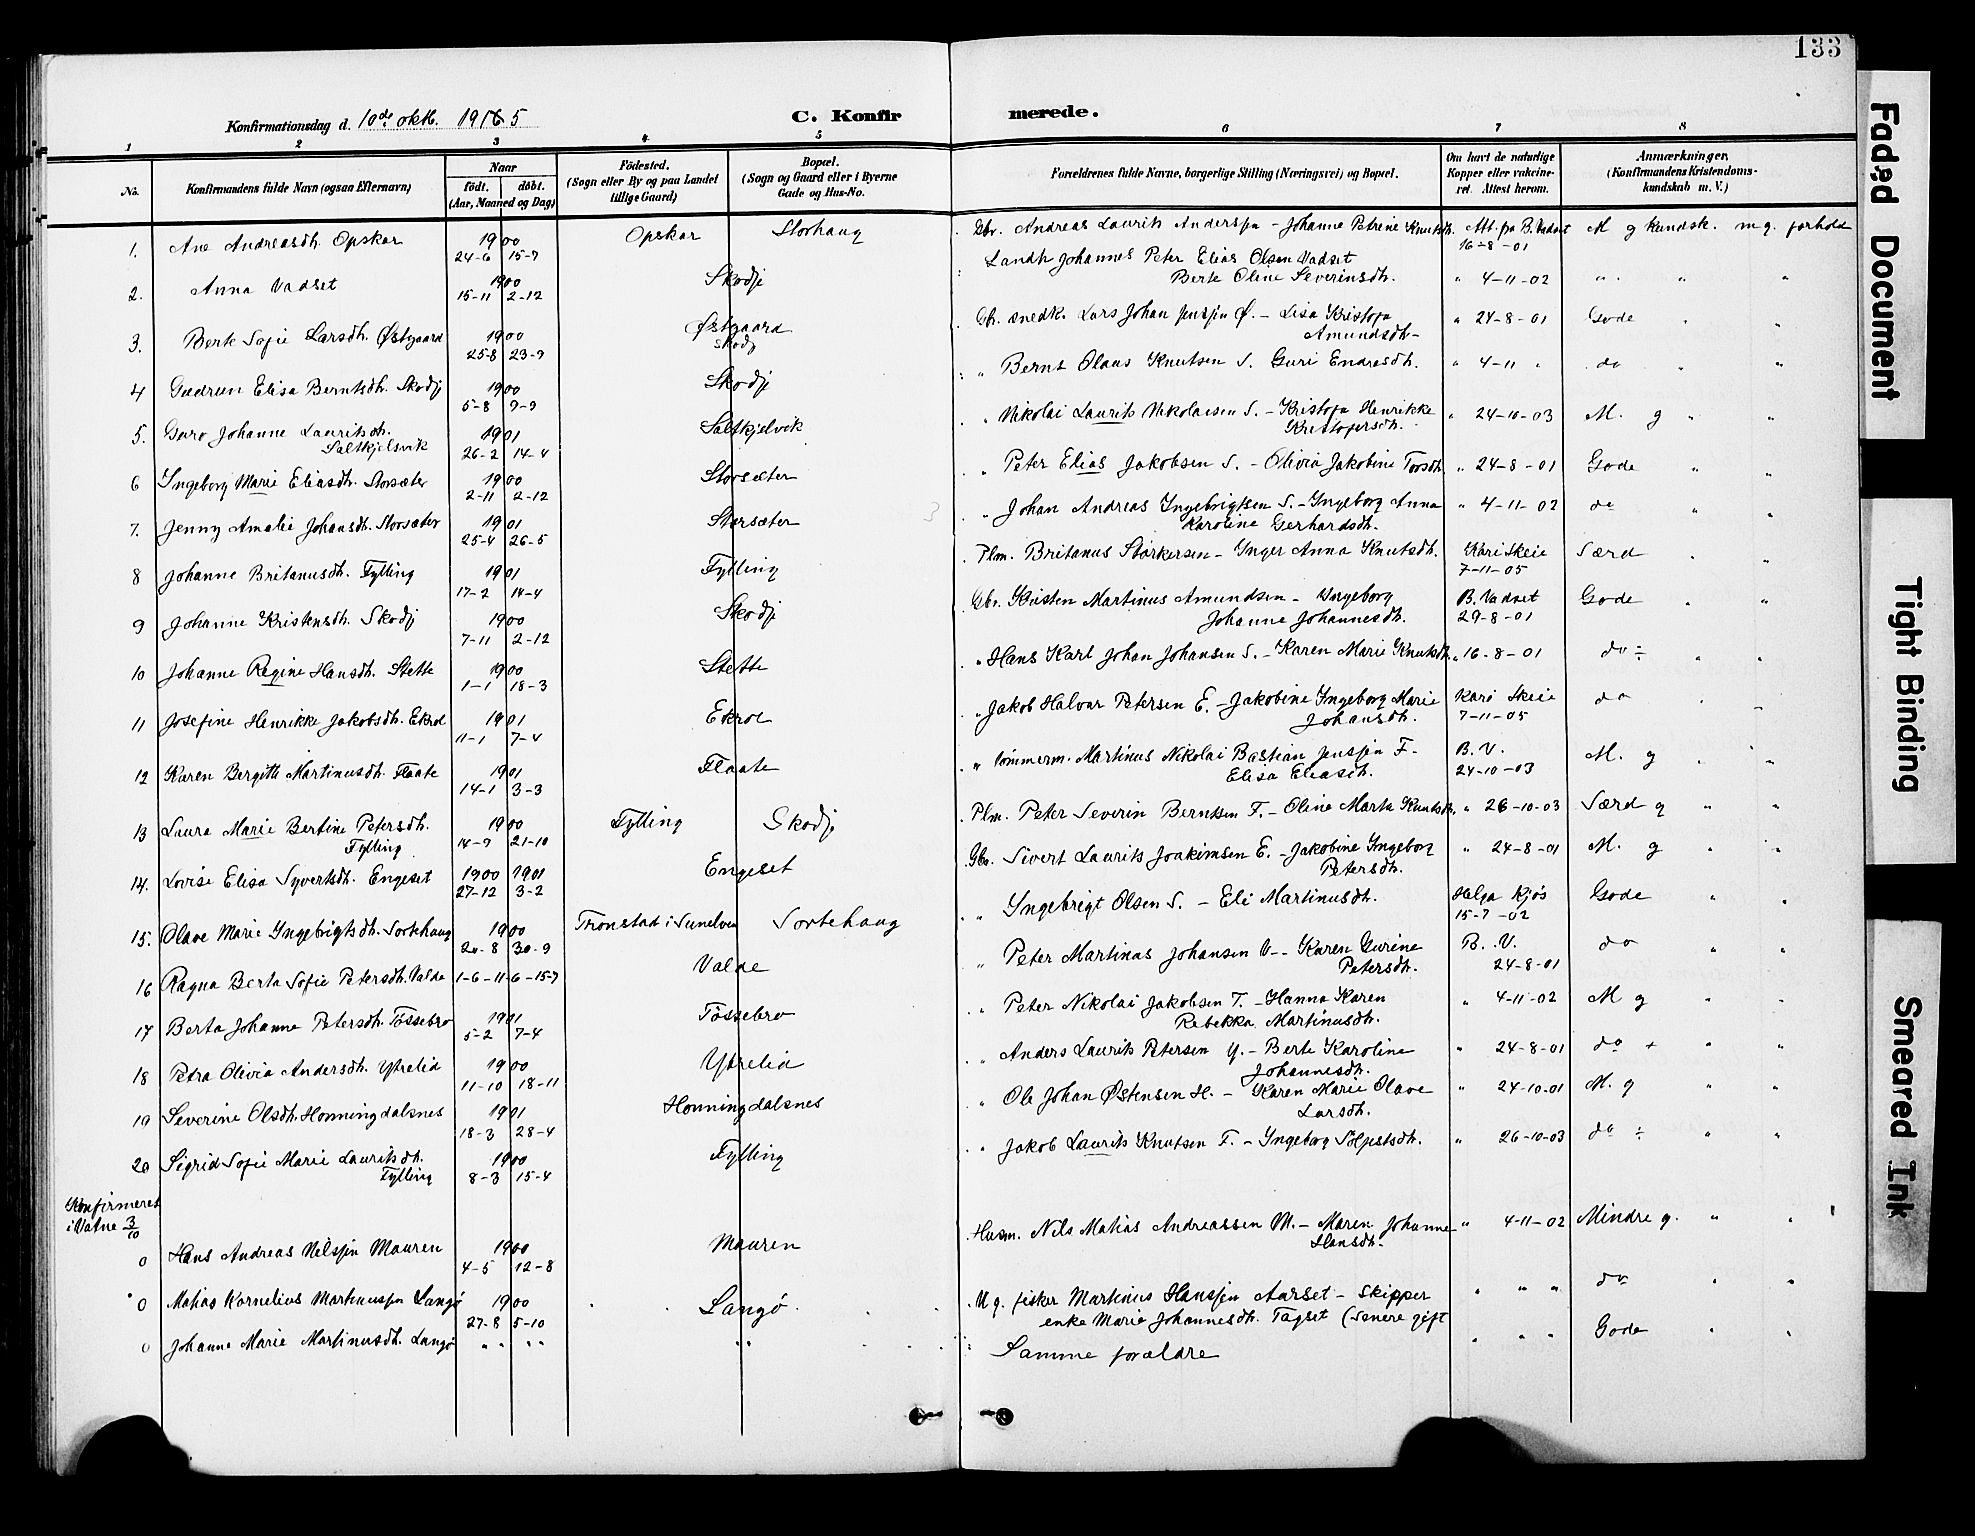 133
Konfirmationsdag d. 10de oktb. 1915
C. Konfirmerede.
1 2 3 4 5 6 7 8
No. Konfirmandens fulde Navn (ogsaa Efternavn)
Naar
födt. döbt.
(Aar, Maaned og Dag)
Födested.
(Sogn eller By og paa Landet
tillige Gaard)
Bopæl.
(Sogn og Gaard eller i Byerne
Gade og Hus-No.
Forældrenes fulde Navne, borgerlige Stilling (Næringsvei) og Bopæl.
Om havt de naturlige
Kopper eller vakcine-
ret. Attest herom.
Anmærkninger.
(Konfirmandens Kristendoms-
kundskab m. V.)
1. Ane Andreasdtr. Opskar 1900 24-6 15-7 Opskar Storhaug Gbr. Andreas Laurits Anderssen - Johanne Petrine Knutsdtr. Att. fra B. Vadset 16-8-01 M g kundsk. m g. forhold
2. Anna Vadset 1900 15-11 2-12 Skodje Landh Johannes Peter Elias Olsen Vadset
Berte Oline Severinsdtr. " 4-11-02 " " "
3. Berte Sofie Larsdtr. Østgaard 1900 25-8 23-9 Østgaard Skodj Gbr. snedk. Lars Johan Jensen Ø. - Lisa Kristofa
Amundsdtr- " 24-8-01 Gode " "
4 Gudrun Elisa Berntsdtr. Skodj 1900 5-8 9-9 Skodje " Bernt Olaus Knutsen S. Guri Endresdtr. " 4-11 " do " "
5. Guro Johanne Lauritsdtr.
Saltkjelsvik 1901 26-2 14-4 Saltkjelvik " Nikolai Laurits Nikolaisen S. - Kristofa Henrikke
Kristofersdtr. " 24-10-03 M. g " "
6 Ingeborg Marie Eliasdtr. Storsæter 1900 2-11 2-12 Storsæter " Peter Elias Jakobsen S. - Olivia Jakobine Torsdtr " 24-8-01 Gode " "
7. Jenny Amalie Johansdtr. Storsæter 1901 25-4 26-5 Storsæter " Johan Andreas Ingebrigtsen S. - Ingeborg Anna
Karoline Gerhardsdtr. " 4-11-02 do " "
8 Johanne Britanusdtr. Fylling 1901 17-2 14-4 Fylling Plm. Britanus Størkersen - Inger Anna Knutsdtr. Kari Skeie 7-11-05 Særd " "
9 Johanne Kristensdtr. Skodj 1900 7-11 2-12 Skodje Gbr. Kristen Martinus Amundsen - Ingeborg
Johanne Johannesdtr. B. Vadset 29-8-01 Gode " "
10 Johanne Regine Hansdtr. Stette 1900 1-1 18-3 Stette " Hans Karl Johan Johansen S. - Karen Marie Knutsdtr. " 16-8-01 do ÷ " "
11 Josefine Henrikke Jakobsdtr. Ekrol 1901 11-1 7-4 Ekrol " Jakob Halvar Petersen E. - Jakobine Ingeborg Marie
Johansdtr. Kari Skeie 7-11-05 do " "
12 Karen Bergitte Martinusdtr. Flaate 1901 14-1 3-3 Flaate " tømmerm. Martinus Nikolai Bastian Jensen F-
Elisa Eliasdtr. B. V. 24-10-03 M. g " "
13 Laura Marie Bertine Petersdtr.
Fylling 1900 14-9 21-10 Fylling Skodje Plm. Peter Severin Berntsen F. - Oline Marta Knutsdtr. " 26-10-03 Særd g " "
14. Lovise Elisa Syvertsdtr. Engeset 1900 27-12 1901 3-2 Engeset Gbr. Sivert Laurits Joakimsen E. - Jakobine Ingeborg
Petersdtr. " 24-8-01 M. g " "
15. Olave Marie Ingebrigtsdtr. Sortehaug 1900 20-8 30-9 Tronstad i Sunelven Sortehaug " Ingebrigt Olsen S. - Eli Martinusdtr. Helga Kjøs 15-7-02 Gode " "
16 Ragna Berta Sofie Petersdtr. Valde 1-6-11-6-15-7 Valde " Peter Martinus Johansen V- - Karen Gurine
Petersdtr. B. V. 24-8-01 do " "
17 Berta Johanne Petersdtr. Tössebro 1901 5-2 7-4 Tössebro " Peter Nikolai Jakobsen T. - Hanna Karen
Rebekka Martinusdtr. " 4-11-02 M g " "
18 Petra Olivia Andersdtr. Ytrelid 1900 11-10 18-11 Ytrelid " Anders Laurits Petersen Y. - Berte Karoline
Johannesdtr. " 24-8-01 do + " "
19 Severine Olsdtr. Honningdalsnes 1901 18-3 28-4 Honningdalsnes " Ole Johan Østensen H. - Karen Marie Olave
Larsdtr. " 24-10-01 M. g " "
20 Sigrid Sofie Marie Lauritsdtr.
Fylling 1900 8-3 15-4 Fylling " Jakob Laurits Knutsen F. - Ingeborg Sölfestsdtr. " 26-10-03 do ÷ " "
Konfirmeret
i Vatne 3/10
0 Hans Andreas Nilssen Mauren 1900 4-5 12-8 Mauren Husm. Nils Matias Andreassen M. - Maren Johanne
Hansdtr. " 4-11-02 Mindre g. " "
0 Matias Kornelius Martinussen Langø 1900 27-8 5-10 Langø U g. fisker Martinus Hanssen Aarset - Skipper
enke Marie Johannesdtr. Tagset (senere gift " " " do " "
0 Johanne Marie Martinusdtr. Langø " " " " " " Samme forældre " " " Gode " "
Faded Document
Tight Binding
Smeared Ink